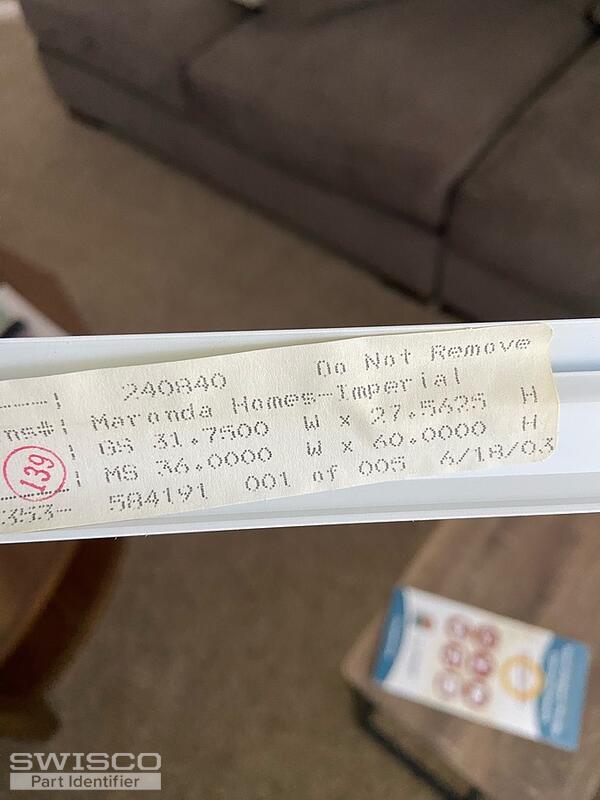 240840 Do Not Remove
ns#: Maronda Homes-Imperial
GS 31.7500 W x 27.5625 H
139
MS 36.0000 W x 60.0000 H
353- 584191 001 of 005 6/18/03
SWISCO
Part Identifier